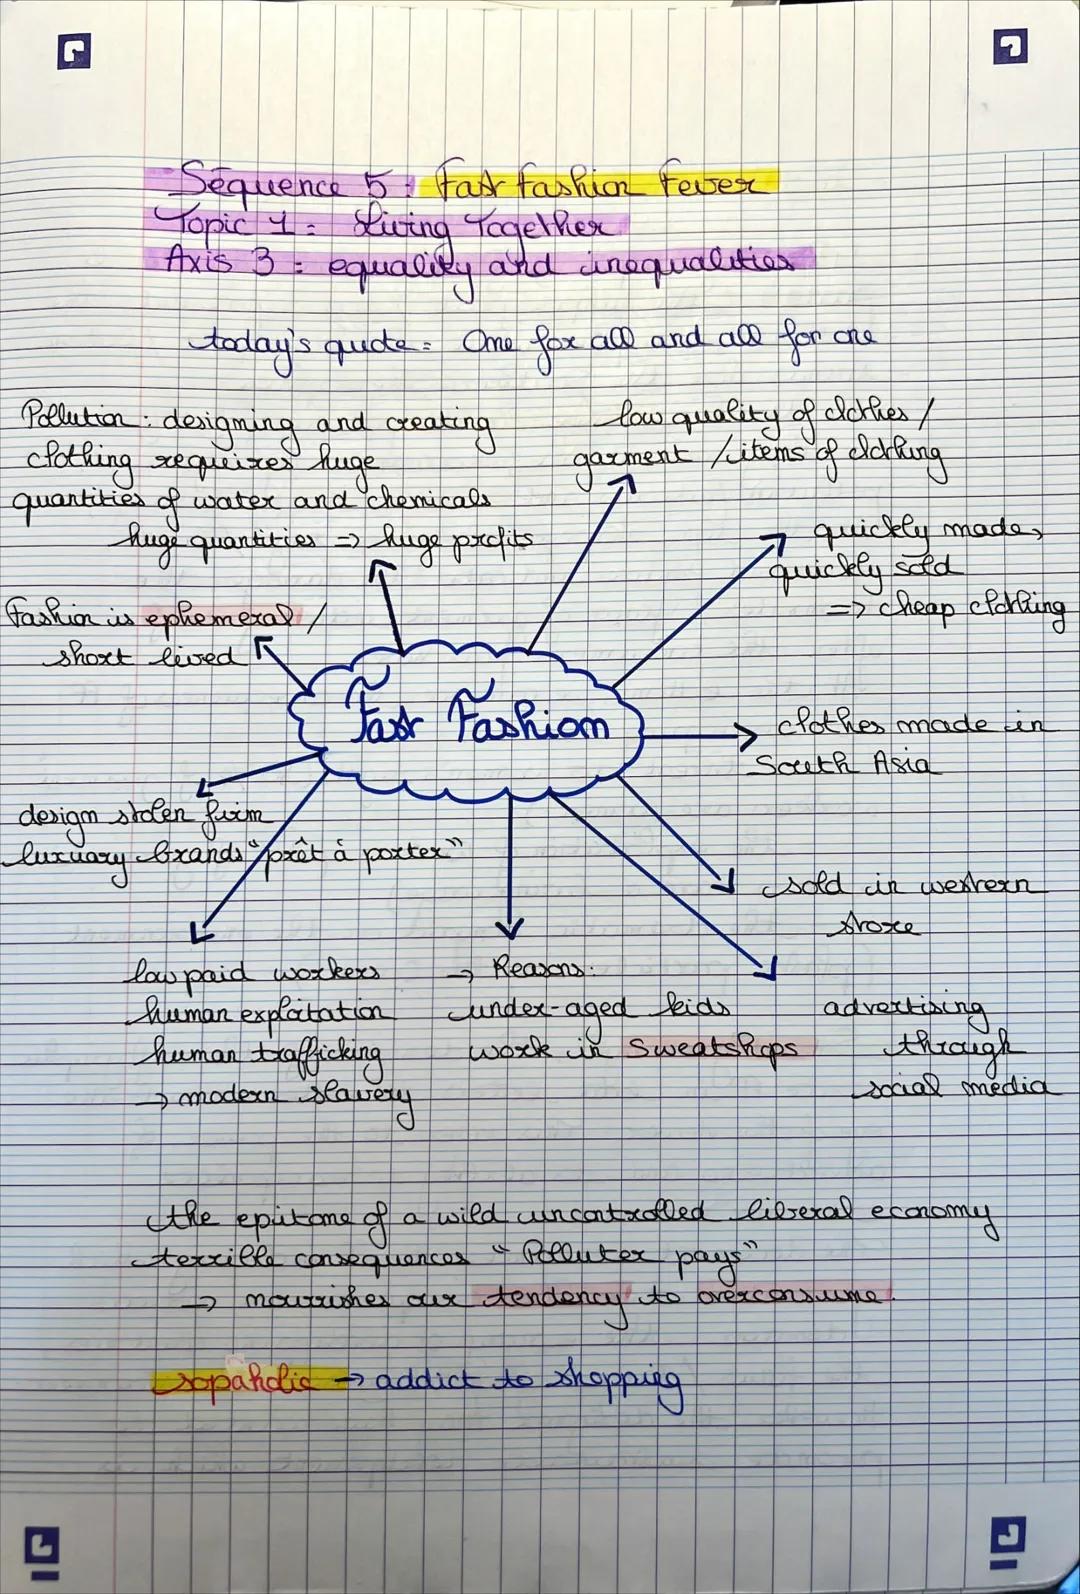 Séquence 5 : Fast Fashion Fever
Topic 1 = Living Together
Axis 3 = equality and inequalities
today's quote = One for all and all for one
Pollution : designing and creating
clothing requires huge
quantities of water and chemicals
huge quantities => huge profits
low quality of clothes /
garment / items of clothing
quickly made,
quickly sold
=> cheap clothing
Fashion is ephemeral /
short lived
Fast Fashion
clothes made in
South Asia
design stolen from
luxuary brands "prêt à porter"
sold in western
store
low paid workers
human exploitation
human trafficking
→ modern slavery
→ Reasons:
under-aged kids
work in sweatshops
advertising
through
social media
the epitome of a wild uncontrolled liberal economy
terrible consequences "Polluter pays"
→ nourrishes our tendency to overconsume.
sopaholic → addict to shopping